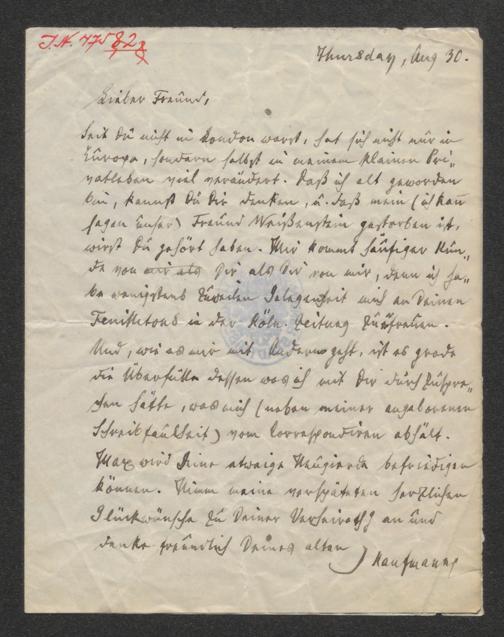 J.N. 77582
Thursday, Aug 30.
Lieber Freund,
Seit Du nicht in London warst, hat sich nicht nur in
Europa, sondern selbst in meinem kleinen Pri-
vatleben viel verändert. Daß ich alt geworden
bin, kannst Du Dir denken, u. daß mein (ich kann
sagen unser) Freund Weißenstein gestorben ist,
wirst Du gehört haben. Mir kommt häufiger Kun-
de von Dir als Dir von mir, denn ich ha-
be wenigstens zuweilen Gelegenheit mich an Deinen
Feuilletons in der Köln. Zeitung zu erfreuen.
Und, wie es mir mit Andern geht, ist es grade
die Überfülle dessen was ich mit Dir durchzuspre-
chen hätte, was mich (neben meiner angeborenen
Schreibfaulheit) vom Correspondiren abhält.
Max wird Deine etwaige Neugierde befriedigen
können. Nimm meine verspäteten herzlichen
Glückwünsche zu Deiner Verheirathg an und
denke freundlich Deines alten
Kaufmann